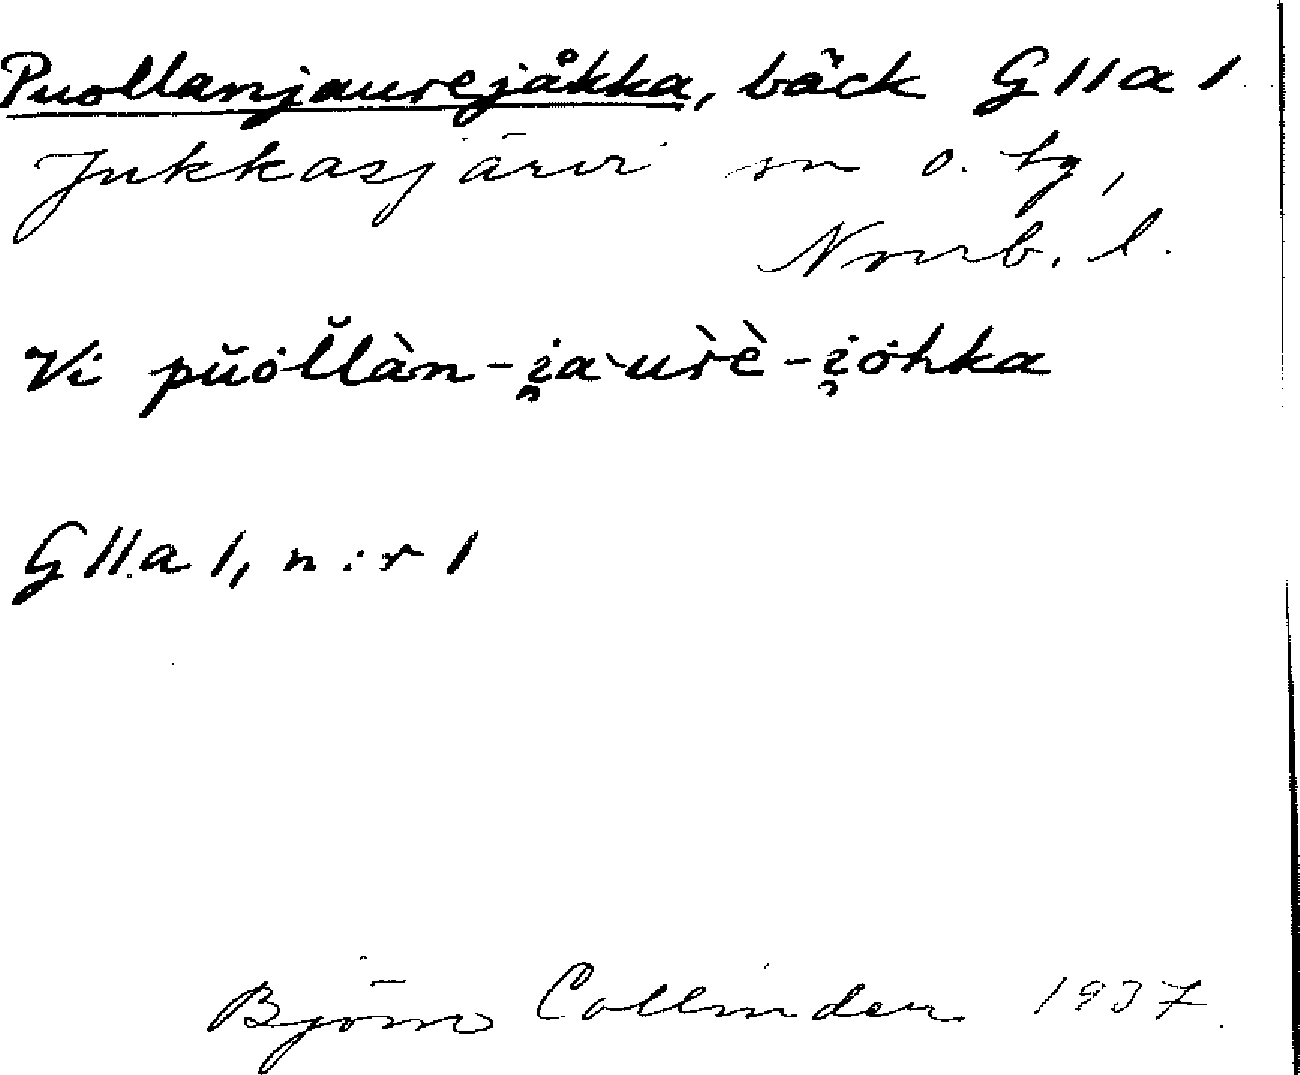 Puollanjaurejåkka, bäck G II a 1
Jukkasjärvi sn o. tg,
Norrb. l.
Vi pŭȯl̆làn-i̯a`ur̀è-i̯ȯhka
G II a 1, n:r 1
Björn Collinder 1937